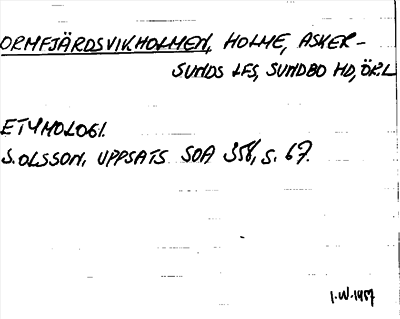 ORMFJÄRDSVIKHOLMEN, HOLME, ASKER-
SUNDS LFS, SUNDBO HD, ÖR.L
ETYMOLOGI.
S. OLSSON, UPPSATS SOA 358, S. 67.